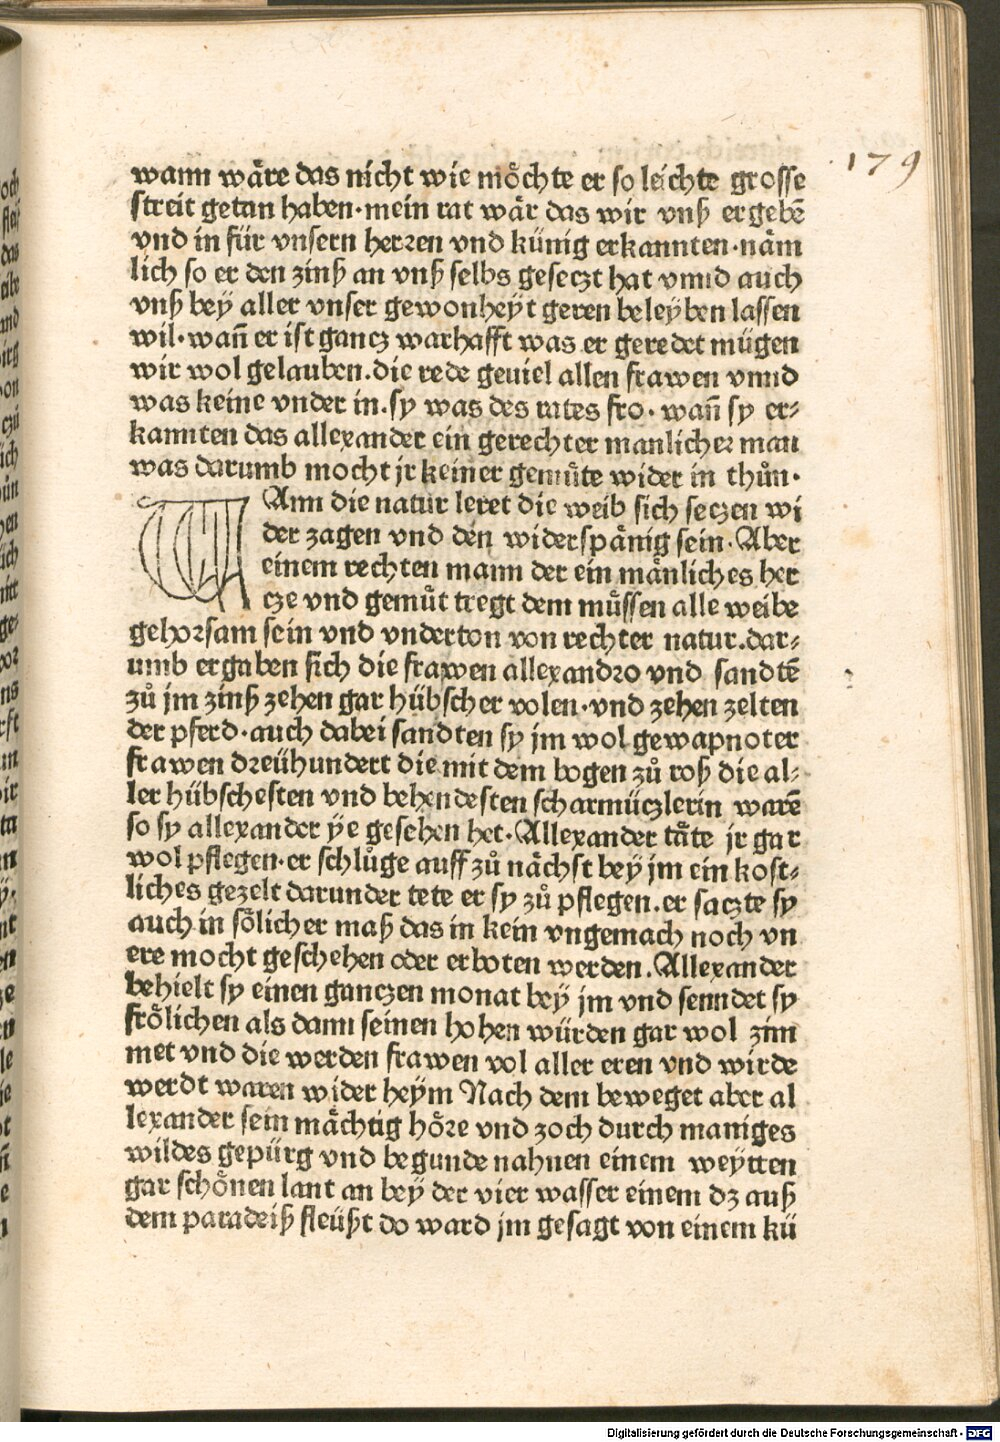 179
wann wäre das nicht wie moͤchte er so leichte grosse
streit getan haben·mein rat waͤr das wir vnß ergebē
vnd in für vnsern herꝛen vnd künig erkannten·naͤm
lich so er den zinß an vnß selbs geseczt hat vnnd auch
vnß beÿ aller vnser gewonheÿt geren beleÿben lassen
wil·wañ er ist gancz warhafft was er geredet mügen
wir wol gelauben.die rede geuiel allen frawen vnnd
was keine vnder in.sy was des rates fro·wañ sy er⸗
kannten das allexander ein gerechter manlicher man
was darumb mocht jr keiner gemuͤte wider in thůn·
WAnn die natur leret die weib sich seczen wi
der zagen vnd den widerspaͤnig sein·Aber
einem rechten mann der ein maͤnliches her
cze vnd gemuͤt tregt dem muͤssen alle weibe
gehoꝛsam sein vnd vnderton von rechter natur.dar⸗
umb ergaben sich die frawen allexandꝛo vnd sandtē
zů jm zinß zehen gar hübscher volen·vnd zehen zelten
der pferd·auch dabei sandten sy jm wol gewapnoter
frawen dꝛeühundert die mit dem bogen zů roß die al⸗
ler hübschesten vnd behendesten scharmüczlerin warē
so sy allexander ÿe gesehen het·Allexander taͤte jr gar
wol pflegen·er schlůge auff zů naͤchst beÿ jm ein kost⸗
liches gezelt darunder tete er sy zů pflegen.er saczte sy
auch in soͤlicher maß das in kein vngemach noch vn
ere mocht geschehen oder erboten werden.Allexander
behielt sy einen ganczen monat beÿ jm vnd senndet sy
froͤlichen als dann seinen hohen würden gar wol zim
met vnd die werden frawen vol aller eren vnd wirde
werdt waren wider heÿm Nach dem beweget aber al
lexander sein maͤchtig hoͤꝛe vnd zoch durch maniges
wildes gepürg vnd begunde nahnen einem weÿtten
gar schoͤnen lant an beÿ der vier wasser einem dz auß
dem paradeiß fleüßt do ward jm gesagt von einem kü
Digitalisierung gefördert durch die Deutsche Forschungsgemeinschaft - DFG